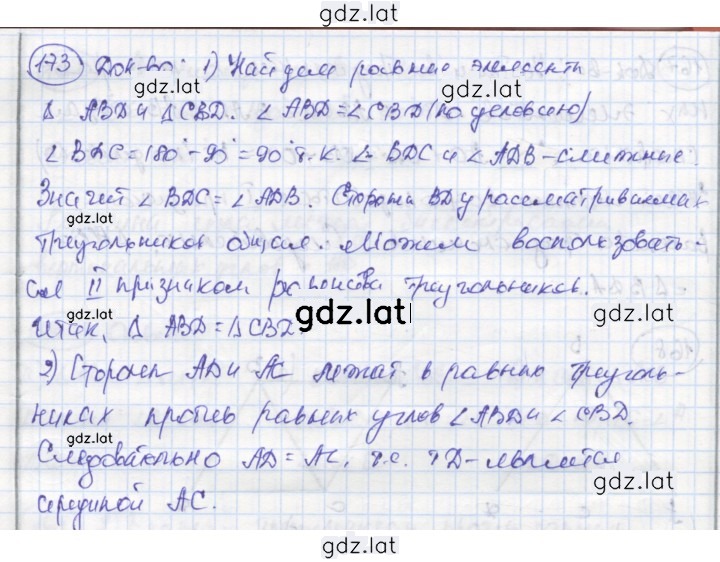 gdz.lat
173 Док-во: 1) Найдем равные элементы
gdz.lat
gdz.lat
Δ ABD и Δ CBD. ∠ ABD = ∠CBD (по условию)
∠ BDC = 180° - 90° = 90° т.к. ∠ BDC и ∠ ADB - смежные.
Значит ∠ BDC = ∠ ADB. Сторона BD у рассматриваемых
треугольников общая. Можем воспользовать-
ся II признаком равенства треугольников.
gdz.lat
Итак, Δ ABD = Δ CBD.
2) Стороны AD и AC лежат в равных треуголь-
никах против равных углов ∠ABD и ∠ CBD.
gdz.lat
Следовательно AD = AC, т.е. т D - является
gdz.lat
серединой AC.
gdz.lat